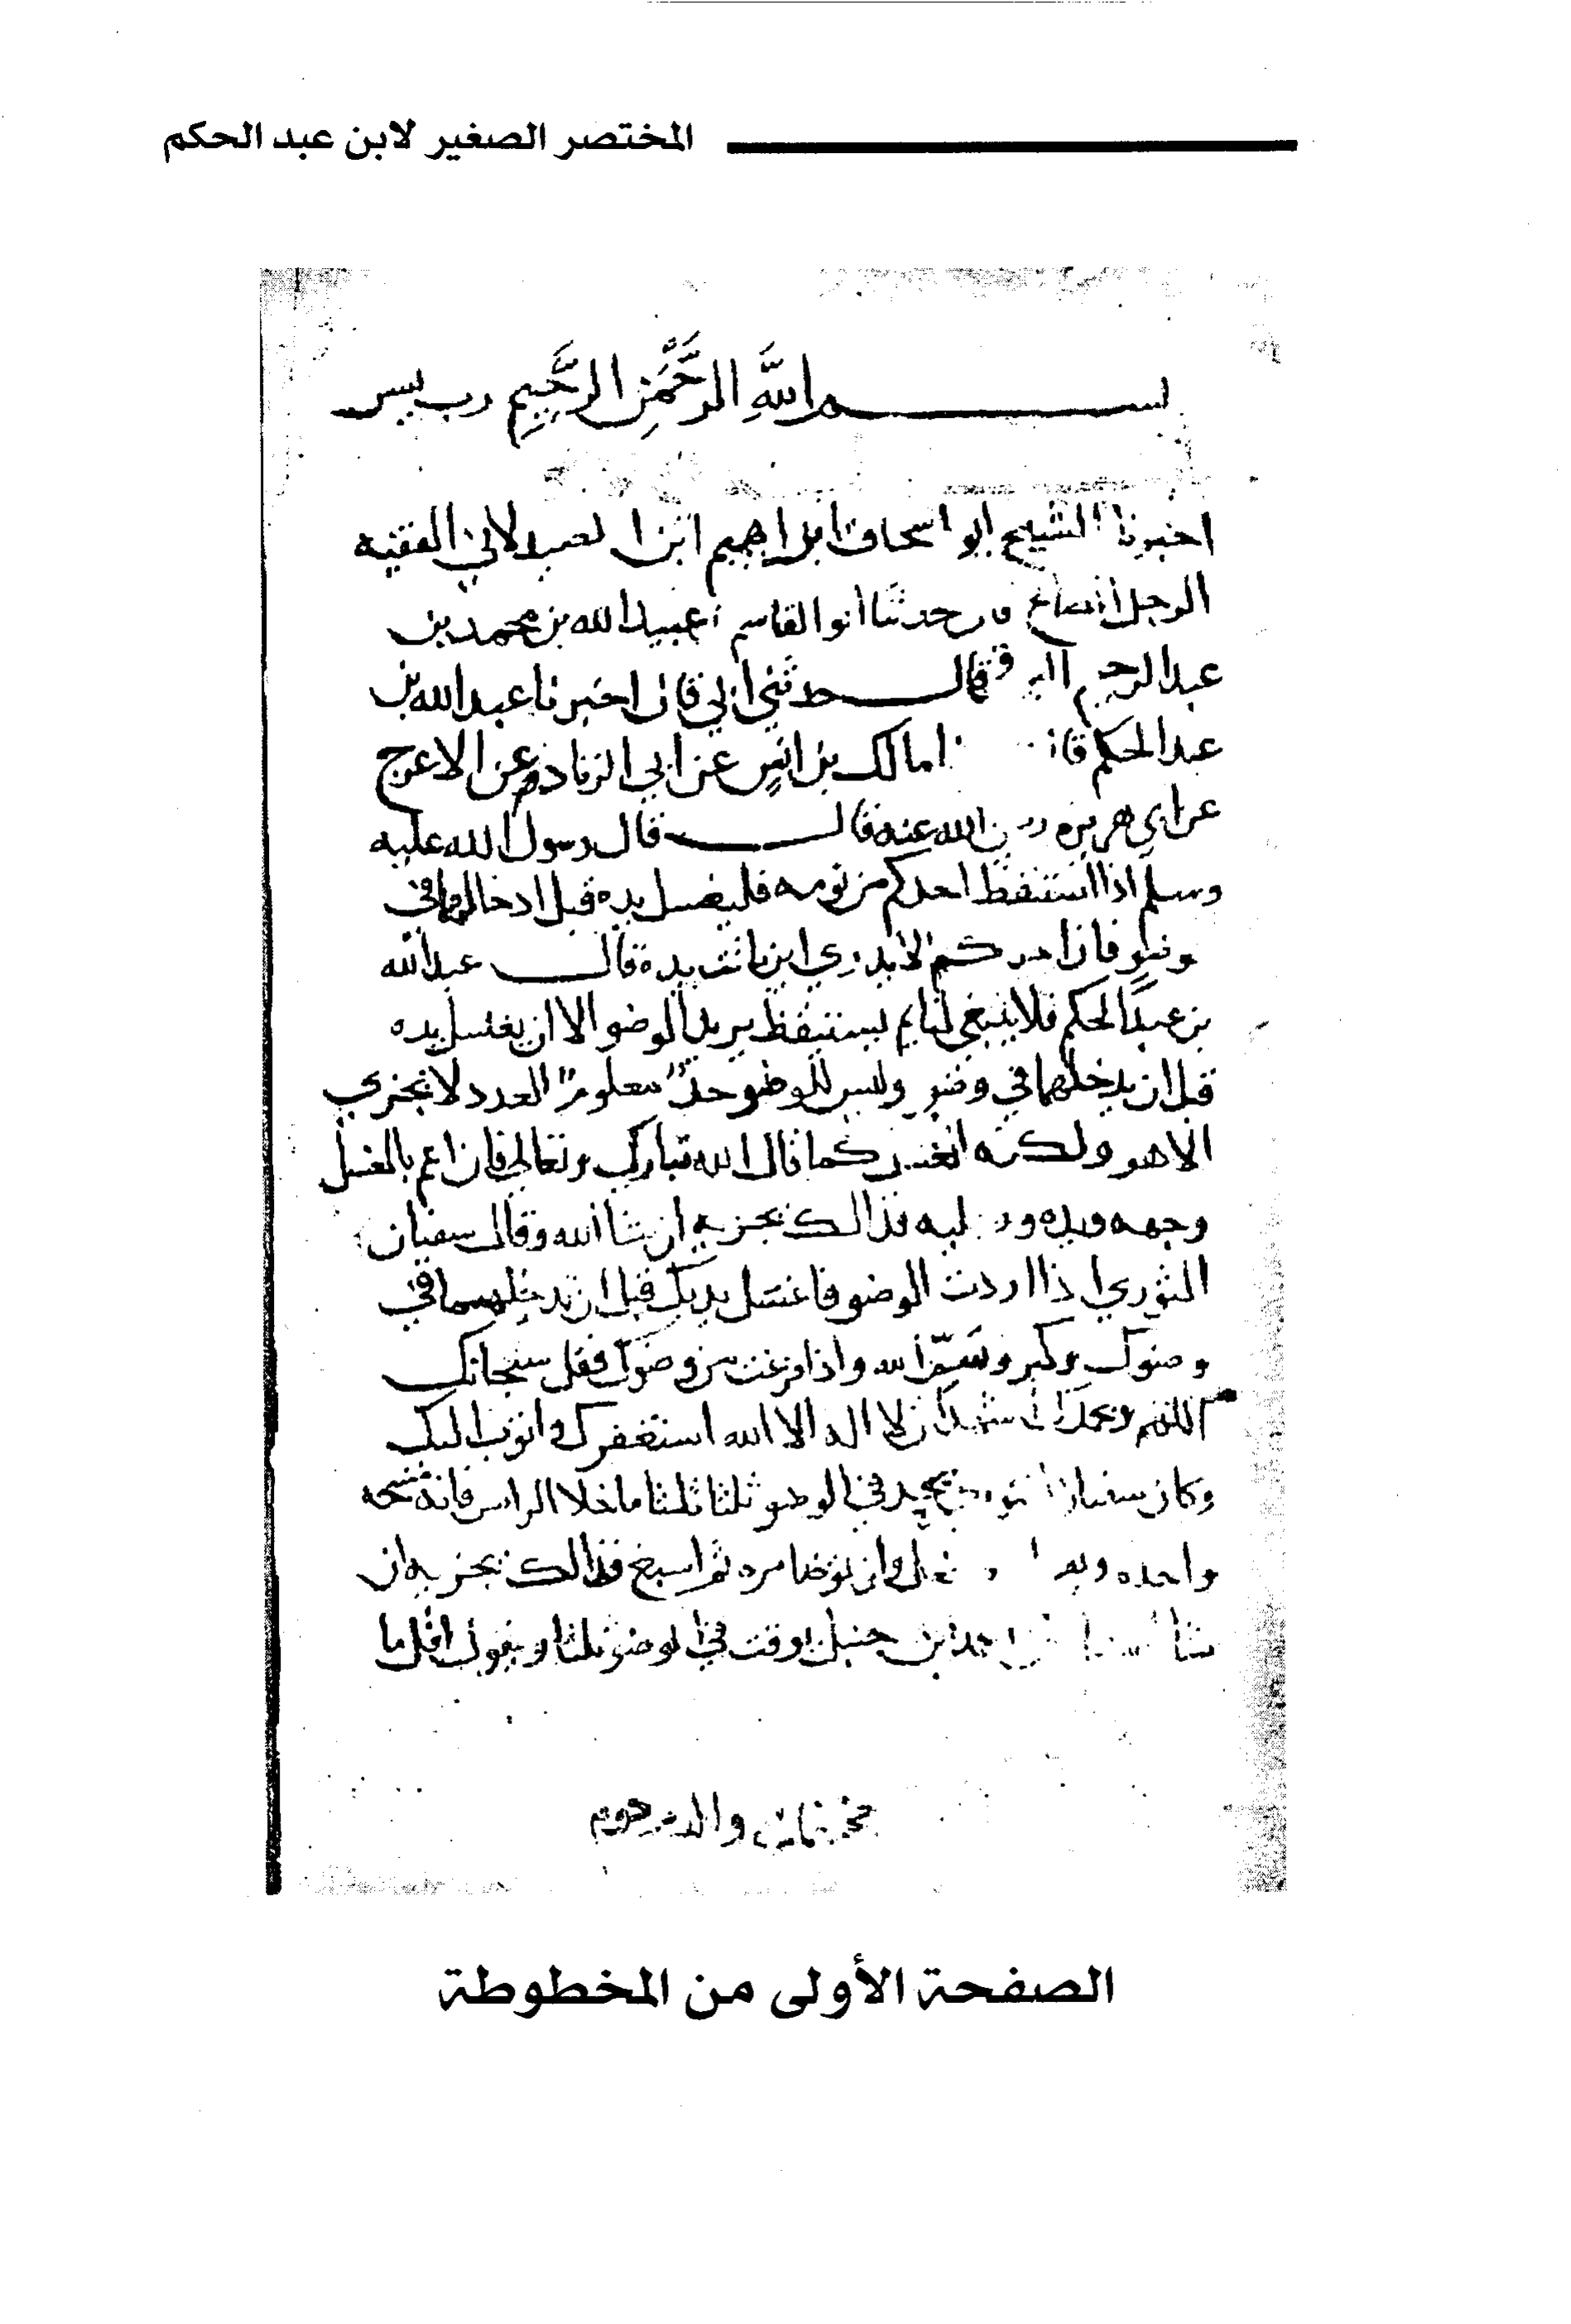 المختصر الصغير لابن عبد الحكم
بسم اللهِ الرَّحْمَنِ الرَّحِيمِ رب يسر
اخبرنا الشيخ ابو اسحاق ابراهيم ابن الفقيه
الرجل الصالح حدثنا ابو القاسم عبيد الله بن محمد بن
عبد الرحيم قال حدثني ابي قال اخبرنا عبد الله بن
عبد الحكم قال مالك بن انس عن ابي الزناد عن الاعرج
عن ابي هريره رضي الله عنه قال قال رسول الله عليه
وسلم اذا استيقظ احدكم من نومه فليغسل يده قبل ادخالها في
وضوه فان احدكم لا يدري اين باتت يده قال عبد الله
بن عبد الحكم فلا ينبغي لنايم يستيقظ يريد الوضو الا ان يغسل يده
قبل ان يدخلهما في وضو وليس للوضو حد معلوم العدد لا يجزي
الا هو ولكنه الغسل كما قال الله تبارك وتعالى فان اعم بالغسل
وجهه ويده ورجليه فذالك يجزيه ان شا الله وقال سفيان
الثوري اذا اردت الوضو فاغسل يديك قبل ان تدخلهما في
وضوك وكبر وسمّ الله واذا فرغت من وضوك فقل سبحانك
اللهم وبحمدك اشهد ان لا اله الا الله استغفرك واتوب اليك
وكان سفيان يحد في الوضو ثلثا ثلثا ما خلا الراس فانه يمسحه
واحده وان توضا مره ثم اسبغ فذالك يجزيه ان
شا احمد بن حنبل يوقت في الوضو ثلثا ويقول اقل ما
الصفحة الأولى من المخطوطة